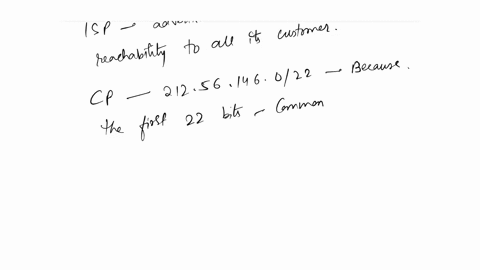 ISP –
reachability to all its customer.
CP — 212.56.146.0/22 — Because
the first 22 bits – Common